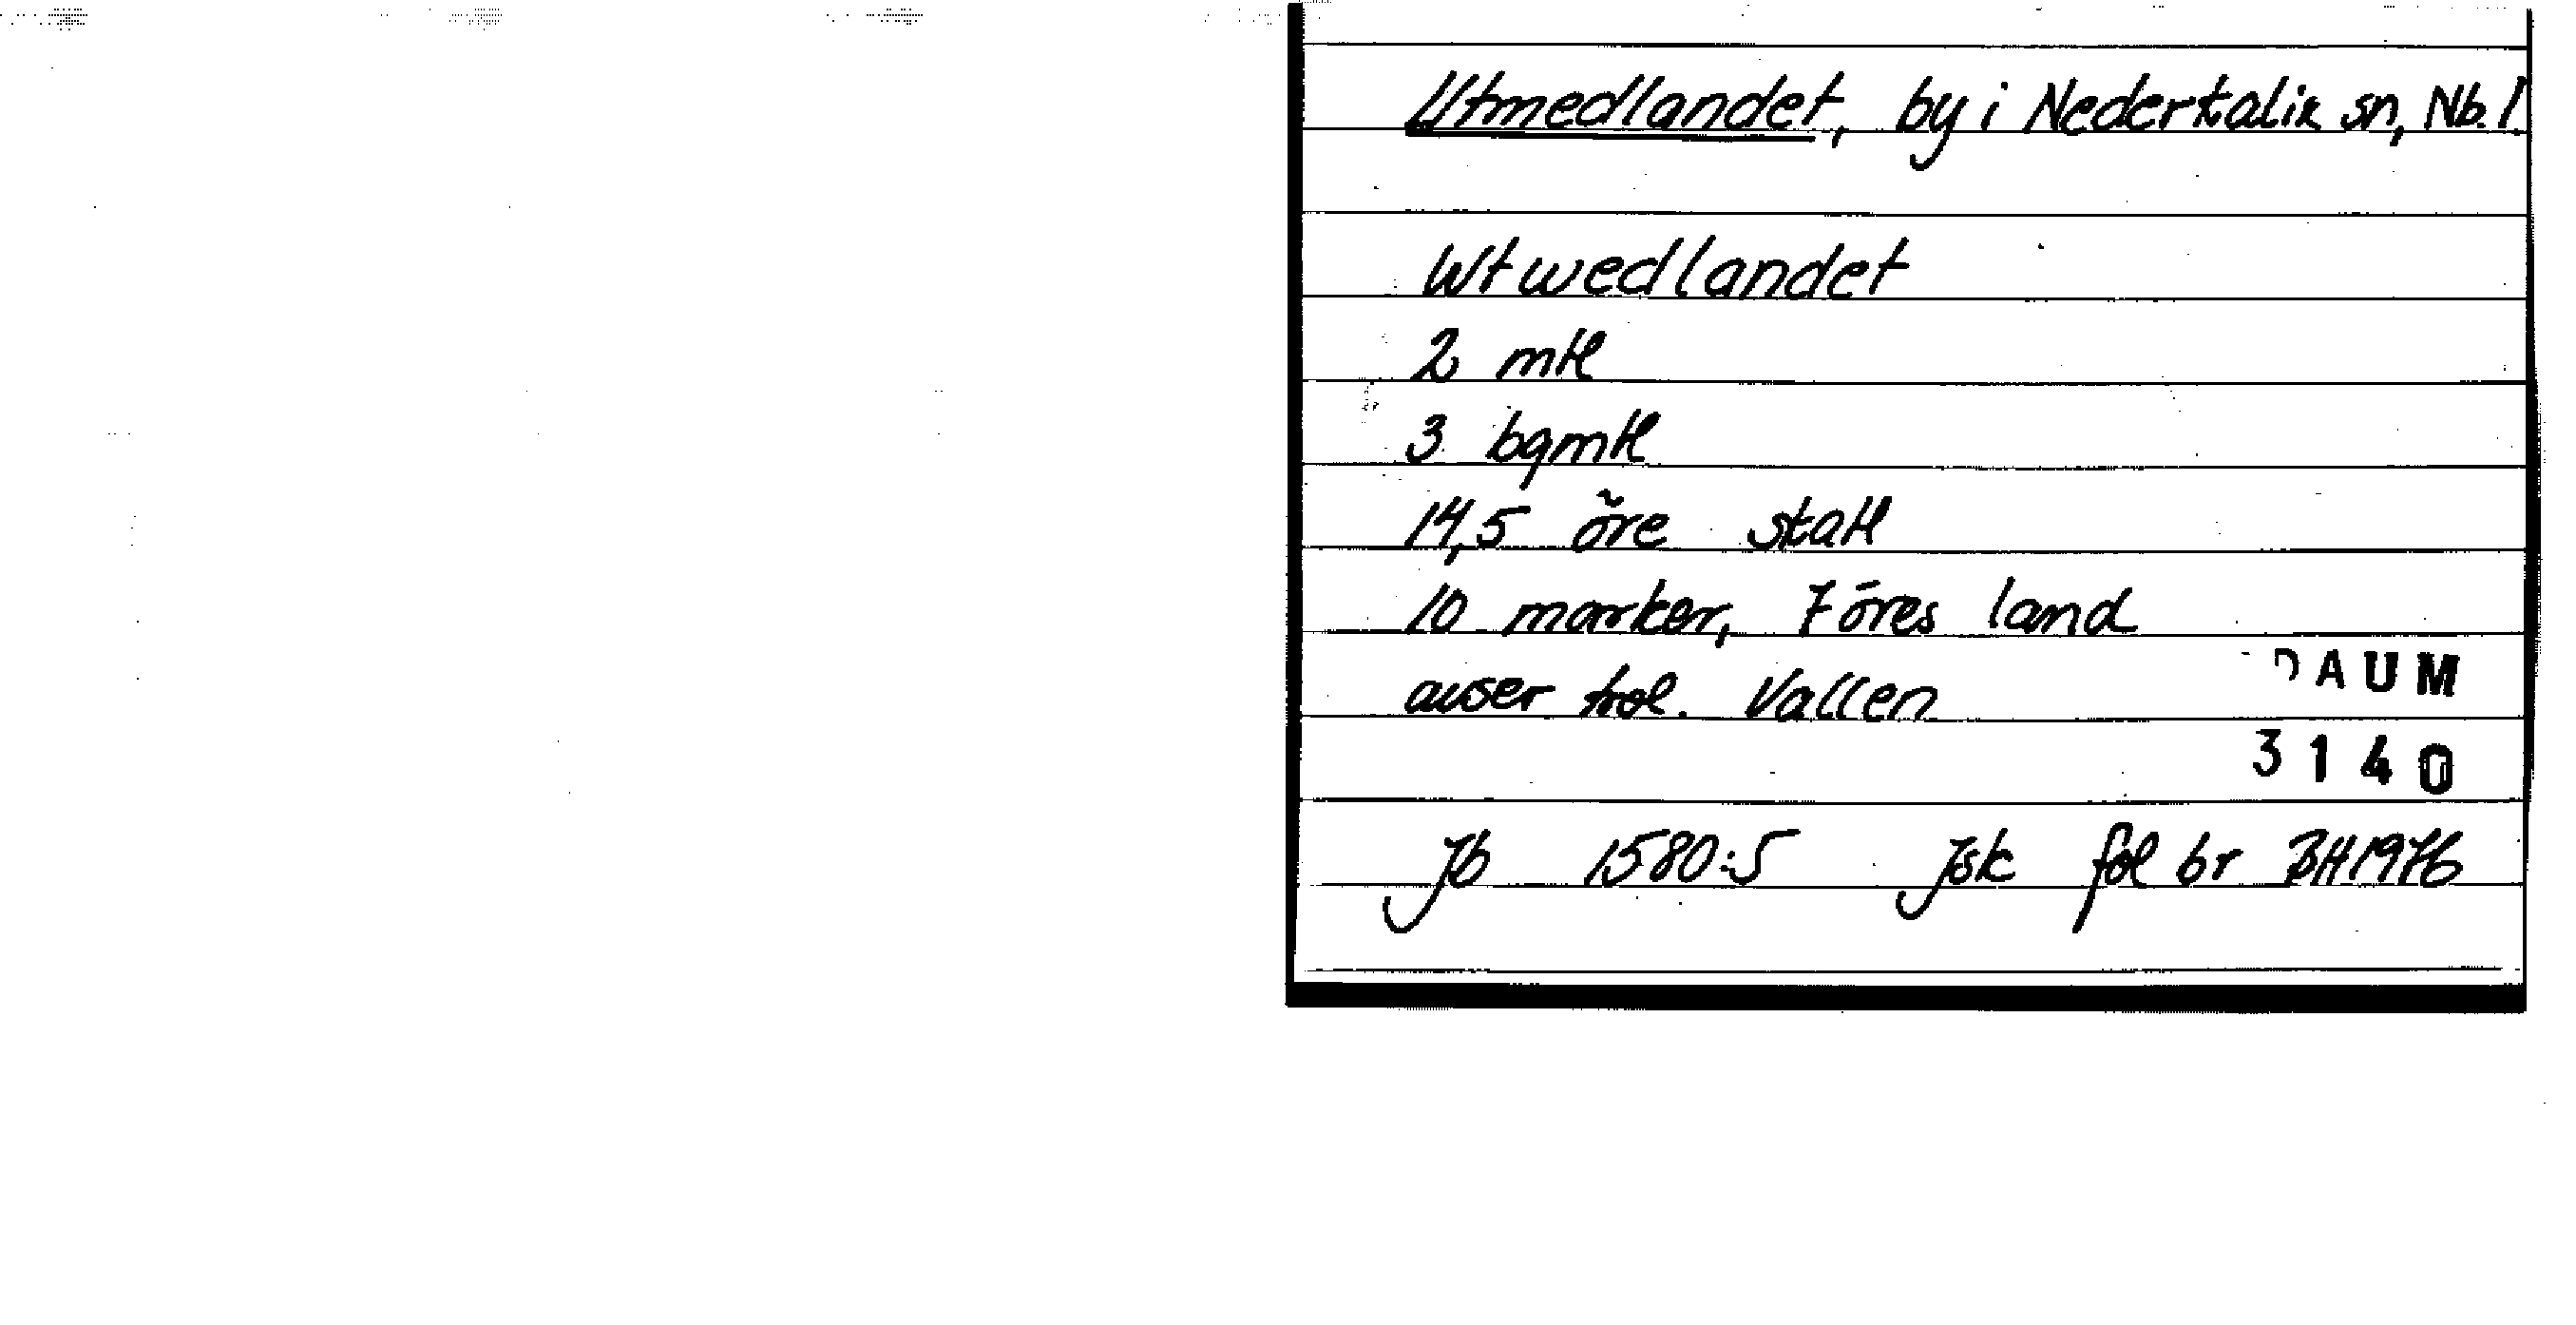 Utmedlandet, by i Nederkalix sn, Nb. l
Wtwedlandet
2 mtl
3 bgmtl
14,5 öre skatt
10 marker, 7 öres land
auser trol. Vallen
DAUM
3140
Jb 1580:5 Jsk fol br BH 1976